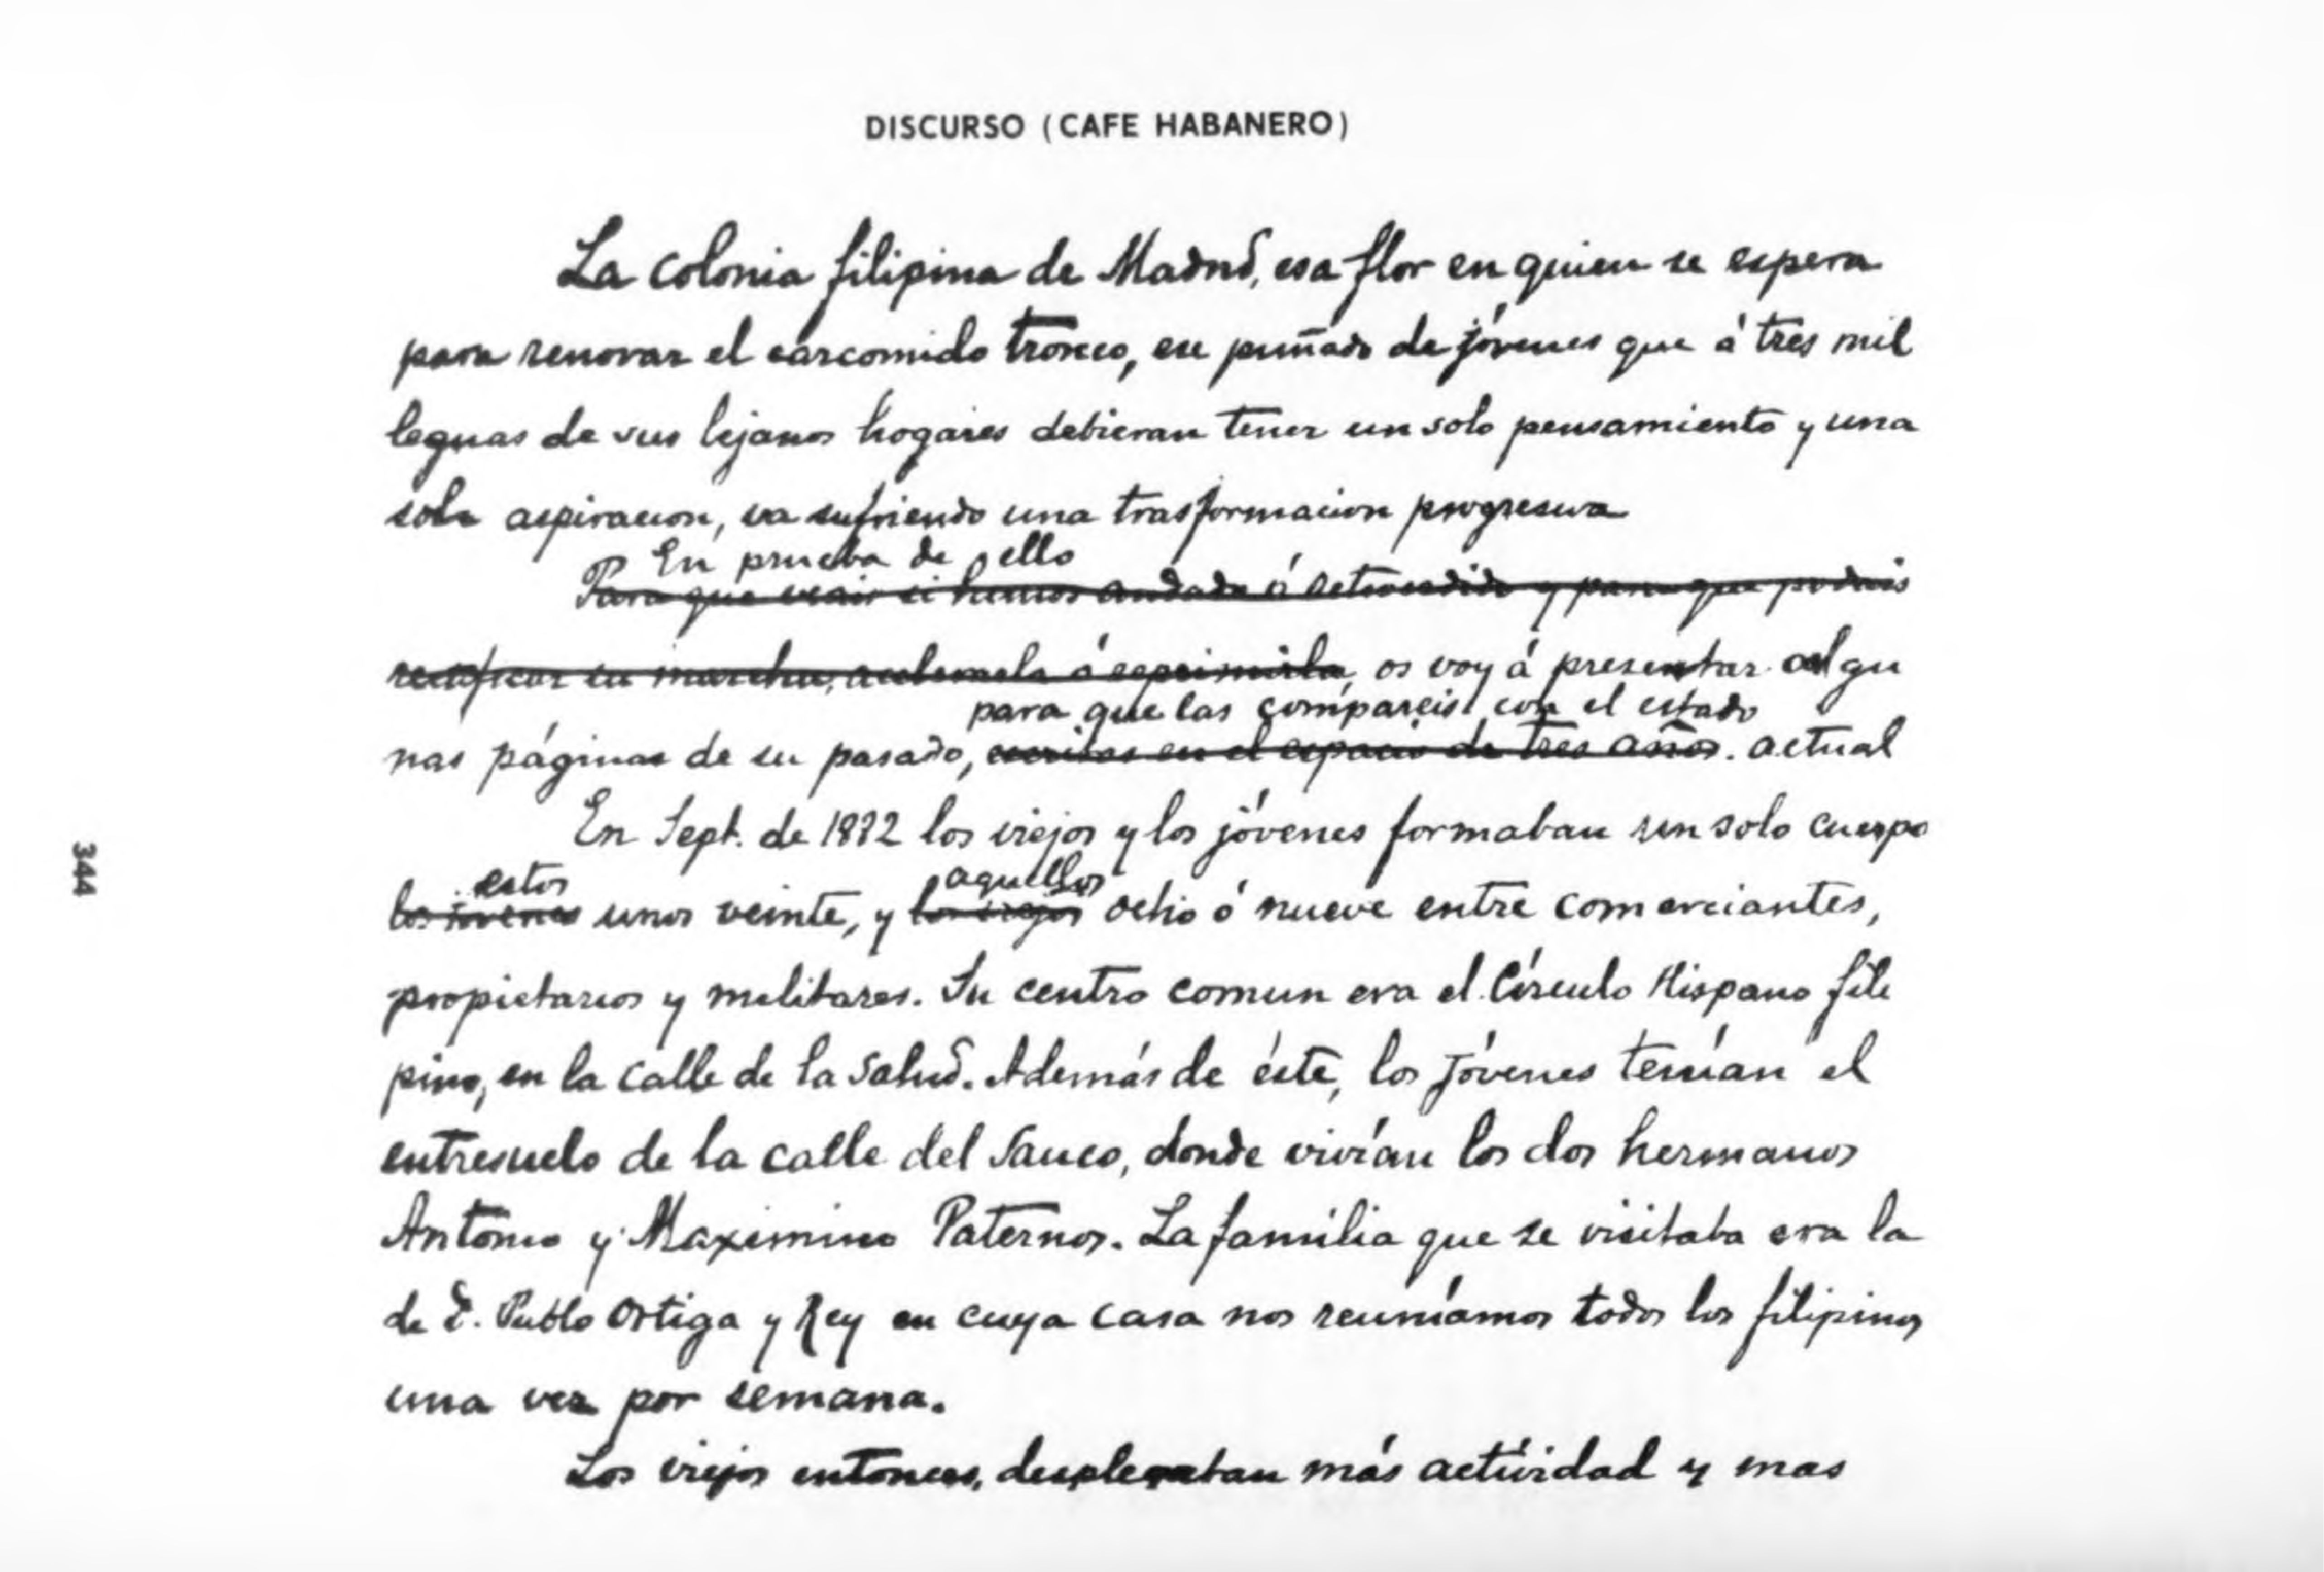 DISCURSO (CAFE HABANERO)
La colonia filipina de Madrid, esa flor en quien se espera
para renovar el carcomido tronco, ese puñado de jóvenes que á tres mil
leguas de sus lejanos hogares debieran tener un solo pensamiento y una
sola aspiracion, va sufriendo una trasformacion progresiva
En prueba de ello
Para que veais si hemos andado ó retrocedido y para que podais
rectificar su marcha, ó, os voy á presentar algu
para que las compareis con el estado
nas páginas de su pasado, escritas en el espacio de tres años. actual
En Sept. de 1882 los viejos y los jóvenes formaban un solo cuerpo
estos aquellos
los jovenes unos veinte, y los viejos ocho ó nueve entre comerciantes,
propietarios y militares. Su centro comun era el Círculo Hispano fili
pino, en la calle de la Salud. Además de éste, los jóvenes tenían el
entresuelo de la calle del Sauco, donde vivían los dos hermanos
Antonio y Maximino Paternos. La familia que se visitaba era la
de D. Pablo Ortiga y Rey en cuya casa nos reuníamos todos los filipinos
una vez por semana.
Los viejos entonces, desplegaban más actividad y mas
344